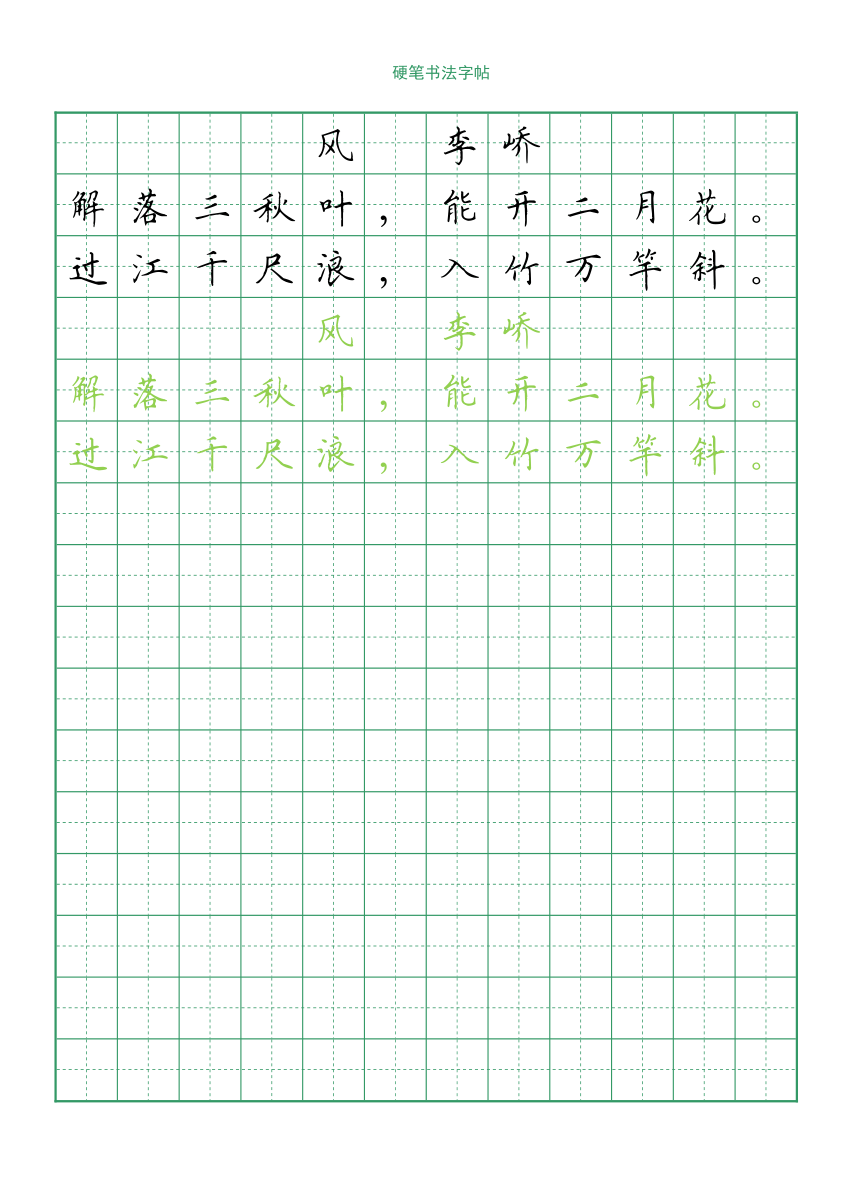 硬笔书法字帖
风 李峤
解落三秋叶，能开二月花。
过江千尺浪，入竹万竿斜。
风 李峤
解落三秋叶，能开二月花。
过江千尺浪，入竹万竿斜。